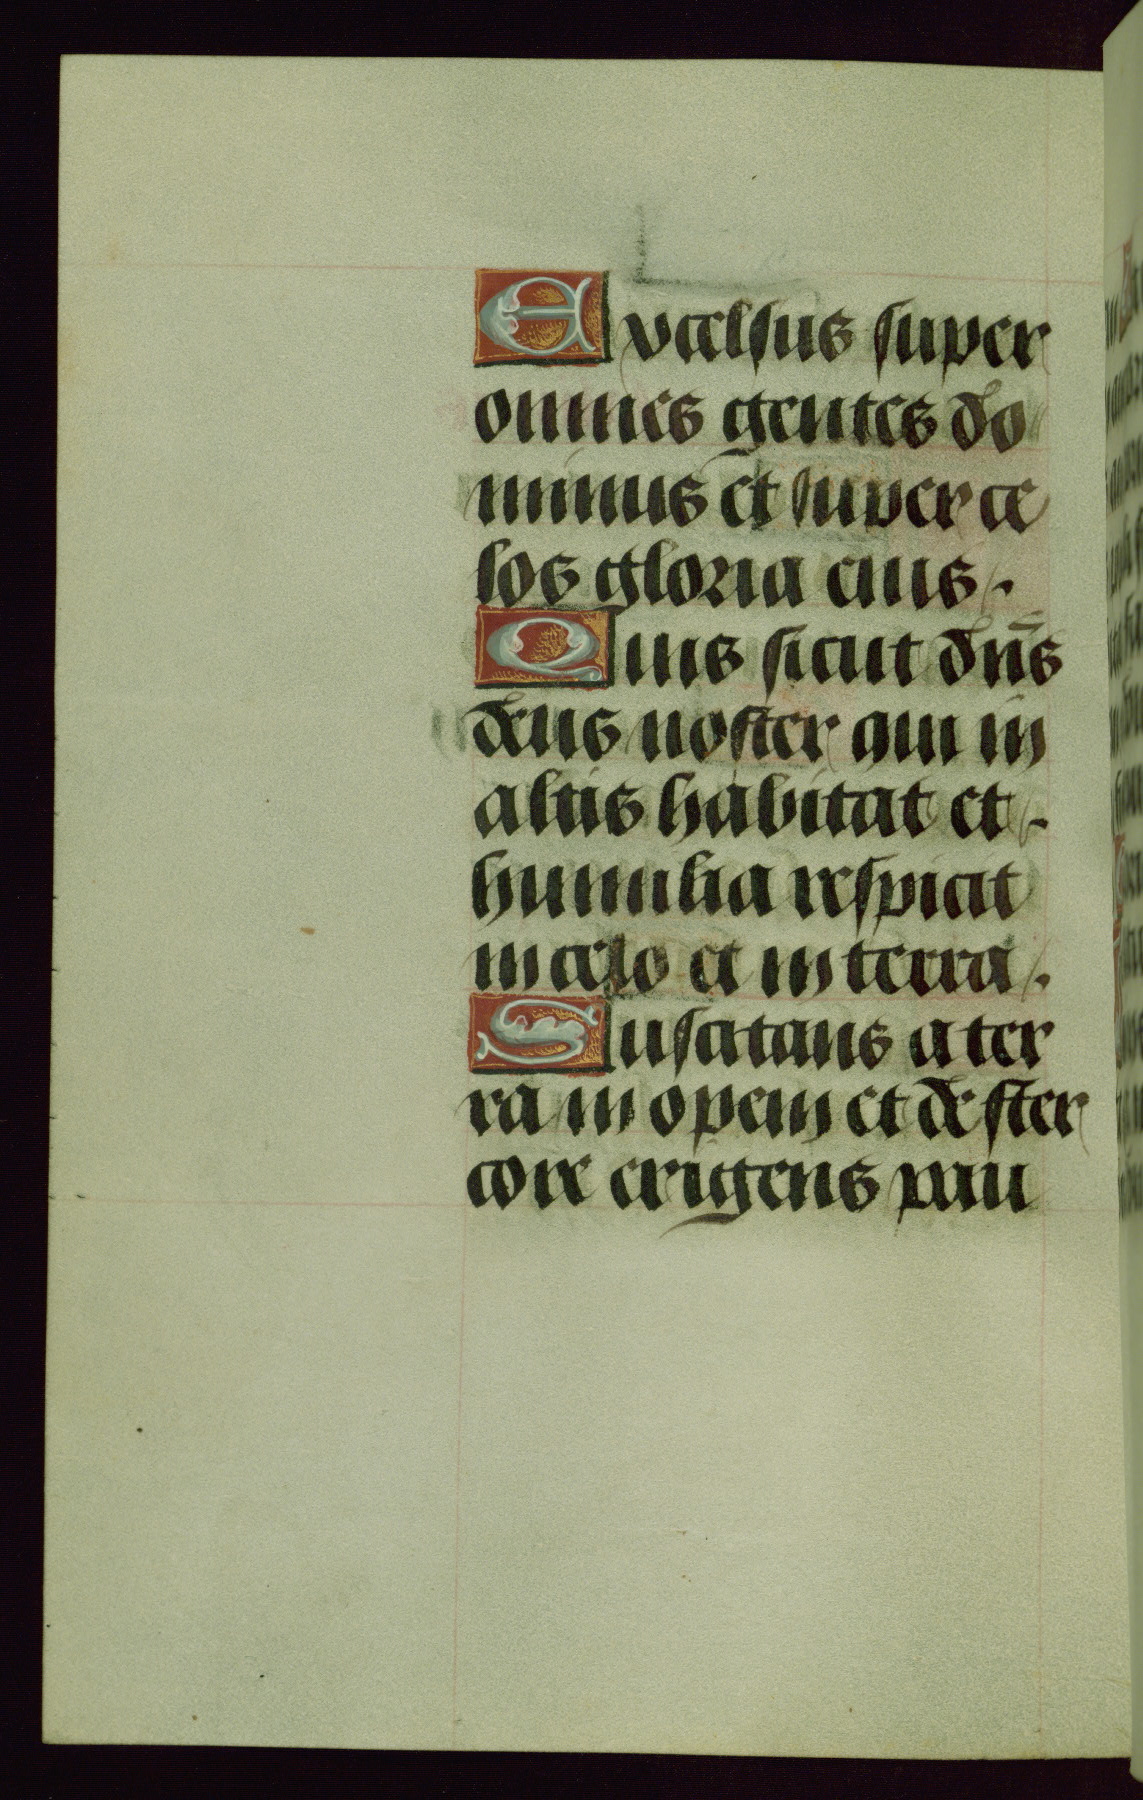 Excelsus super
omnes gentes do
minus et super ce
los gloria eius.
Quis sicut dn̄s
deus noster qui in
altis habitat et
humilia respicit
in celo et in terra.
Suscitans a ter
ra inopem et de ster
core erigens pau